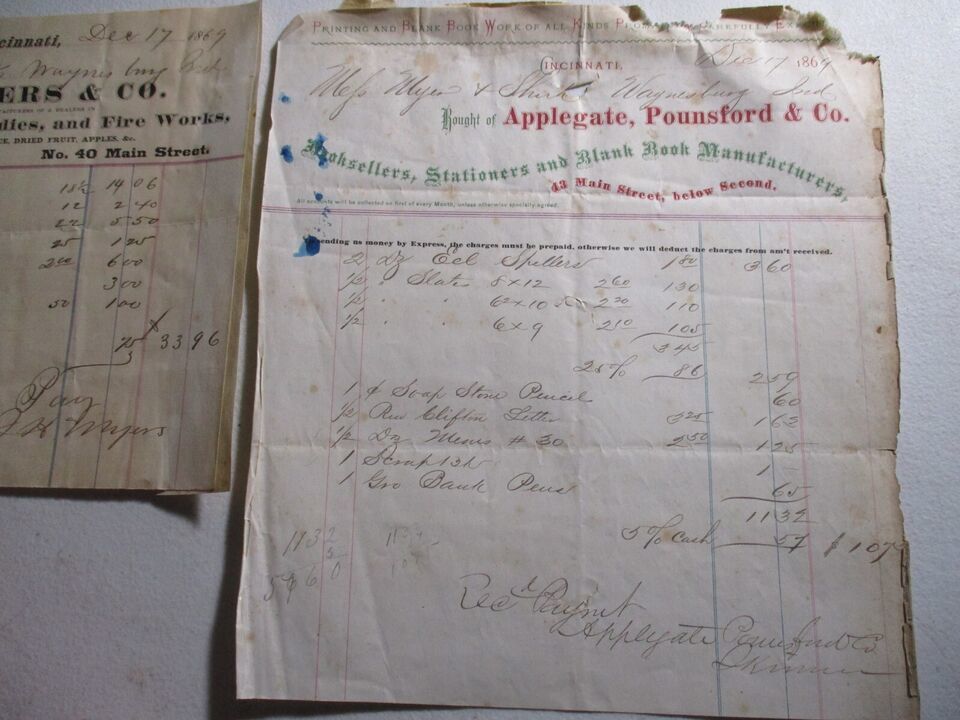 cinnati, Dec 17 1869
Waynesburg Ind
ERS & CO.
dies, and Fire Works,
CE, DRIED FRUIT, APPLES, &c.
No. 40 Main Street.
18½ 14 06
12 2 40
22 5 50
25 1 25
2 00 6 00
3 00
50 1 00
75 33 96
Pay
Myers
PRINTING AND BLANK BOOK WORK OF ALL KINDS PROMPTLY & CAREFULLY
CINCINNATI, Dec 17 1869
Mess Myers & Waynesburg Ind
Bought of Applegate, Pounsford & Co.
Booksellers, Stationers and Blank Book Manufacturers,
43 Main Street, below Second.
All accounts will be collected on first of every Month, unless otherwise specially agreed.
In sending us money by Express, the charges must be prepaid, otherwise we will deduct the charges from am't received.
2 Dz Ecl Spellers 1 80 3 60
½ " Slates 5 x 12 2 60 1 30
½ " " 2 20 1 10
½ " " 6 x 9 2 10 1 05
3 45
25% 86 2 59
1 Soap Stone Pencil 60
½ Rm Clifton Letter 3 25 1 62
½ Dz Mems # 30 2 50 1 25
1 Scrap Bk 1 -
1 Gro Bank Pens 65
11 32
5% Cash 57 $ 107
1132
5
5660
Rec'd Paymt
Applegate Pounsford & Co